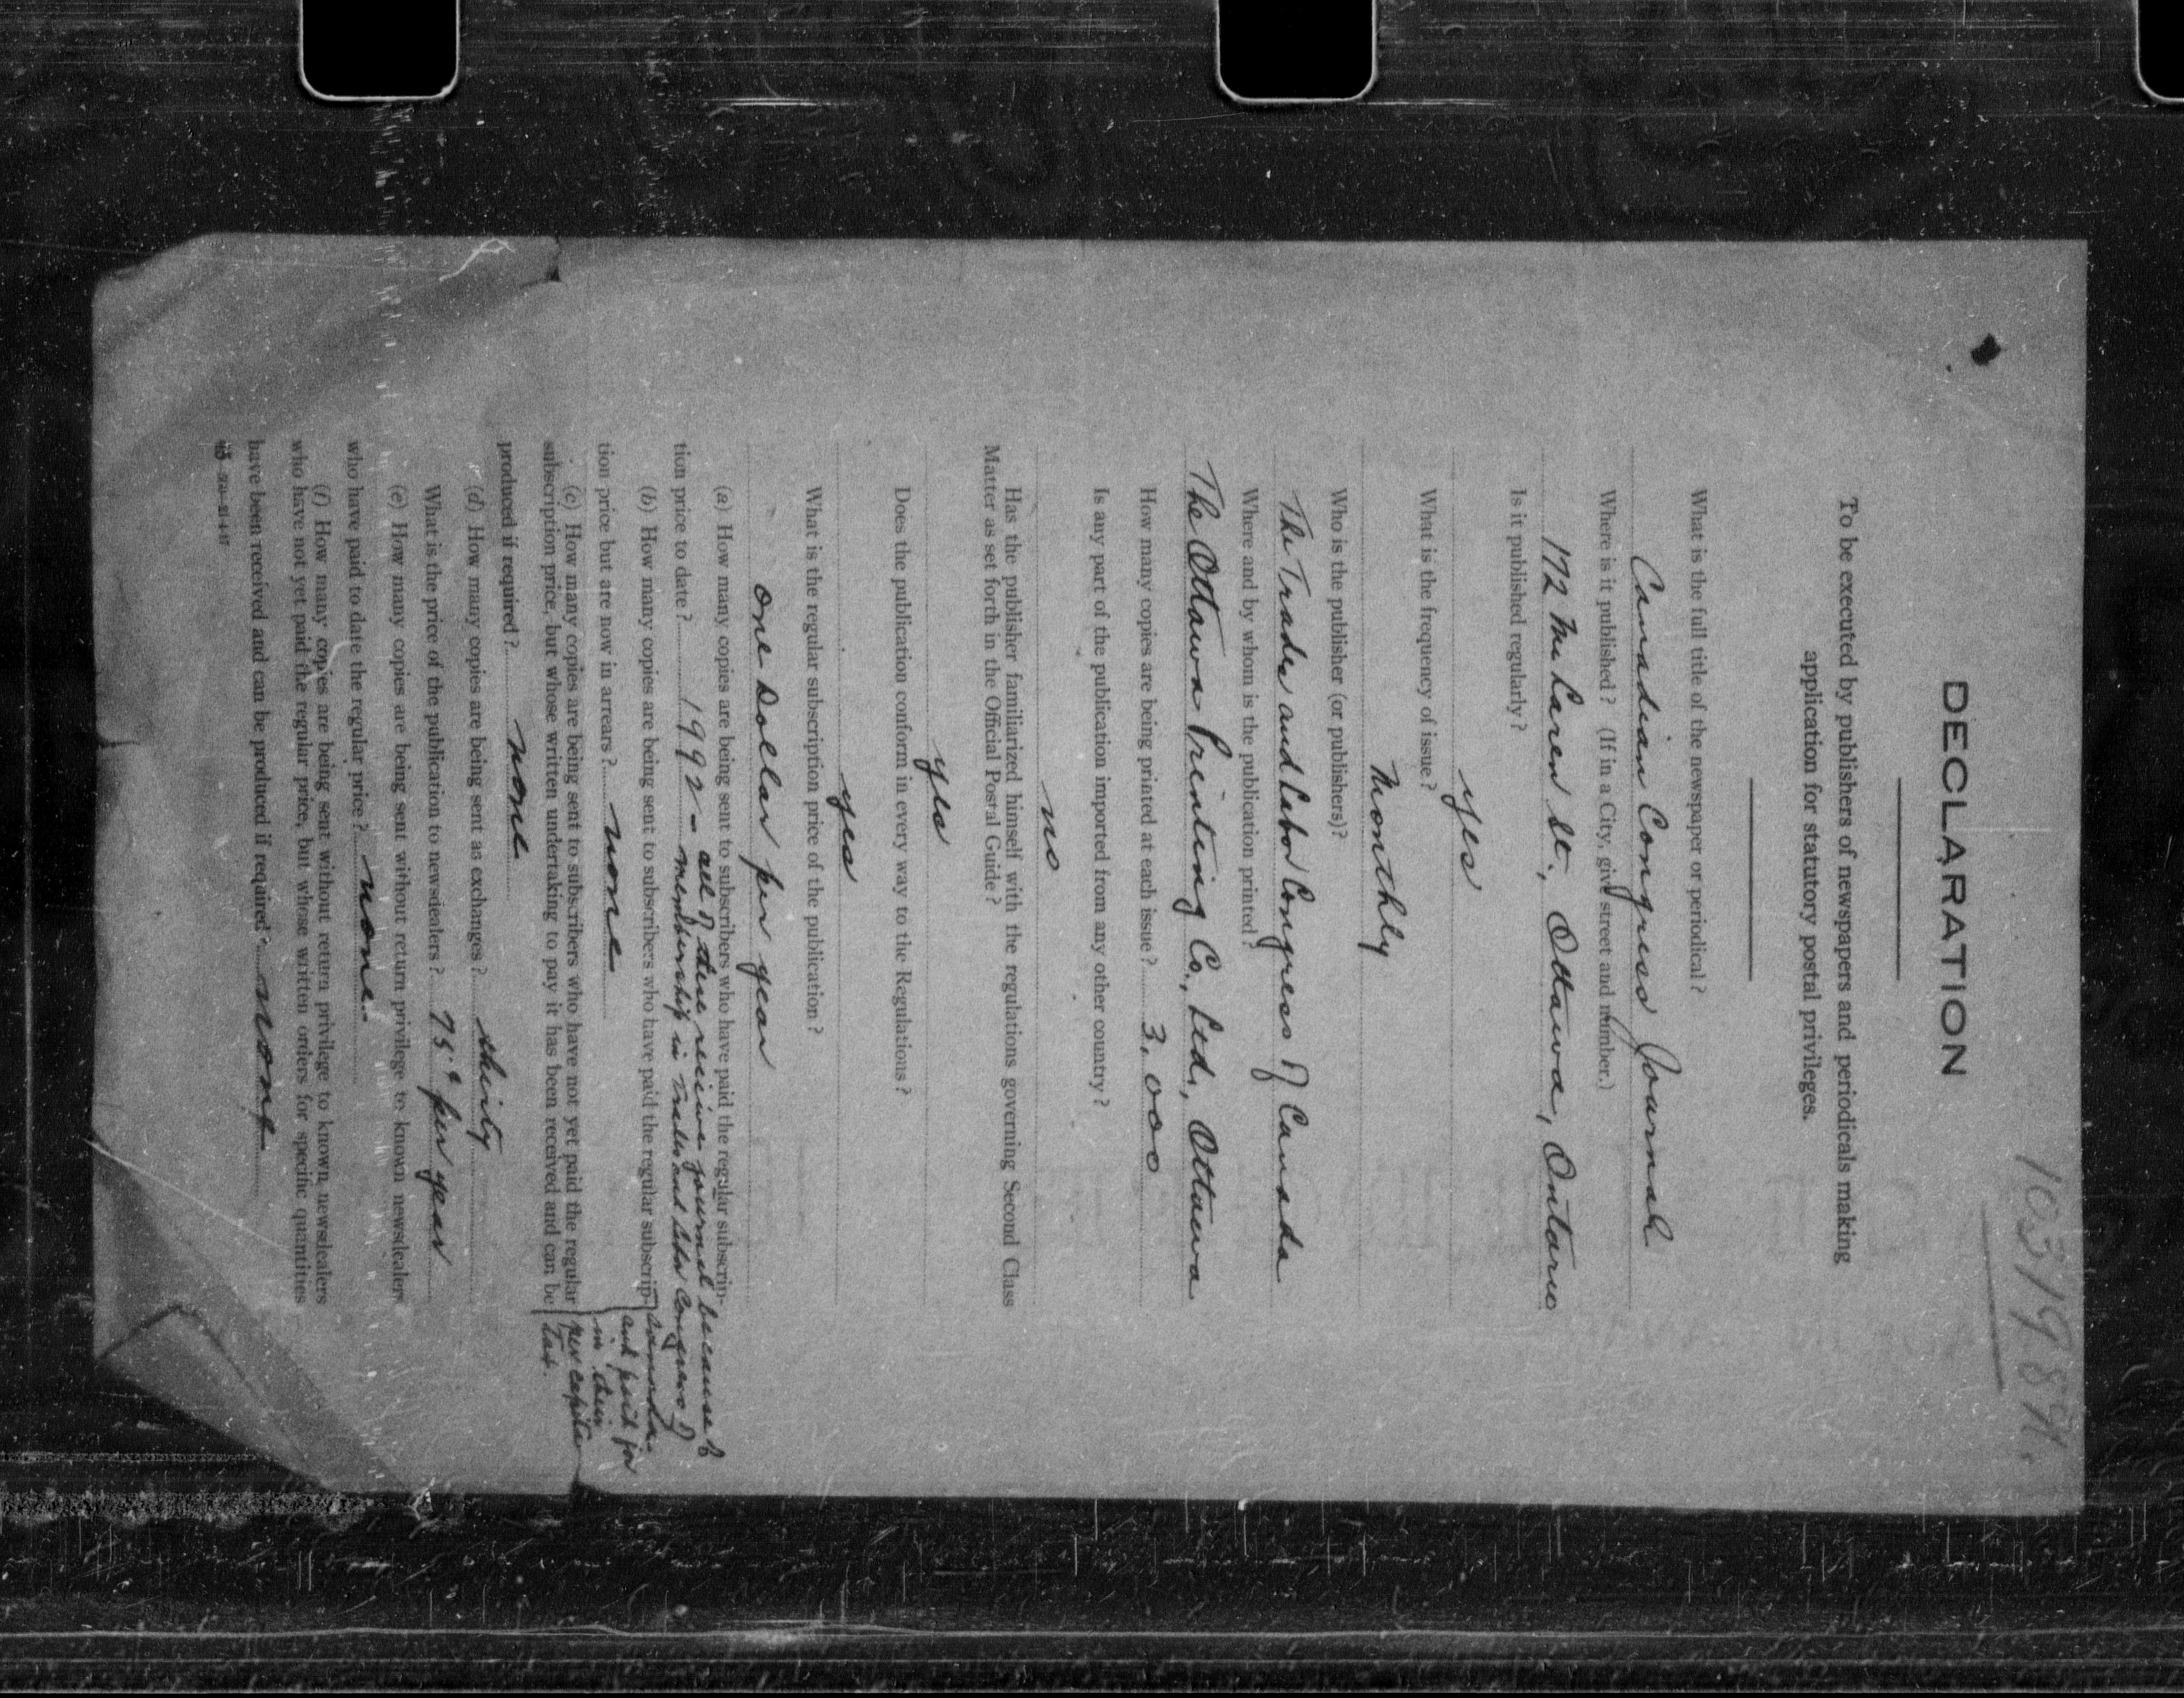 103198H.
DECLARATION
To be executed by publishers of newspapers and periodicals making
application for statutory postal privileges.
What is the full title of the newspaper or periodical?
Canadian Congress Journal
Where is it published? (If in a City, give street and number.)
172 McLaren St., Ottawa, Ontario
Is it published regularly?
yes
What is the frequency of issue?
Monthly
Who is the publisher (or publishers)?
The Trades and Labor Congress of Canada
Where and by whom is the publication printed?
The Ottawa Printing Co., Ltd., Ottawa
How many copies are being printed at each issue? 3,000
Is any part of the publication imported from any other country?
no
Has the publisher familiarized himself with the regulations governing Second Class
Matter as set forth in the Official Postal Guide?
yes
Does the publication conform in every way to the Regulations?
yes
What is the regular subscription price of the publication?
One Dollar per year
(a) How many copies are being sent to subscribers who have paid the regular subscrip-
tion price to date? 1992 - all of these receive journal because of
membership in Trades and Labor Congress of
Canada.
and paid for
in their
per capita
Tax.
(b) How many copies are being sent to subscribers who have paid the regular subscrip-
tion price but are now in arrears? none
(c) How many copies are being sent to subscribers who have not yet paid the regular
subscription price, but whose written undertaking to pay it has been received and can be
produced if required? none
(d) How many copies are being sent as exchanges? thirty
What is the price of the publication to newsdealers? 75¢ per year
(e) How many copies are being sent without return privilege to known newsdealers
who have paid to date the regular price? none.
(f) How many copies are being sent without return privilege to known newsdealers
who have not yet paid the regular price, but whose written orders for specific quantities
have been received and can be produced if required? none